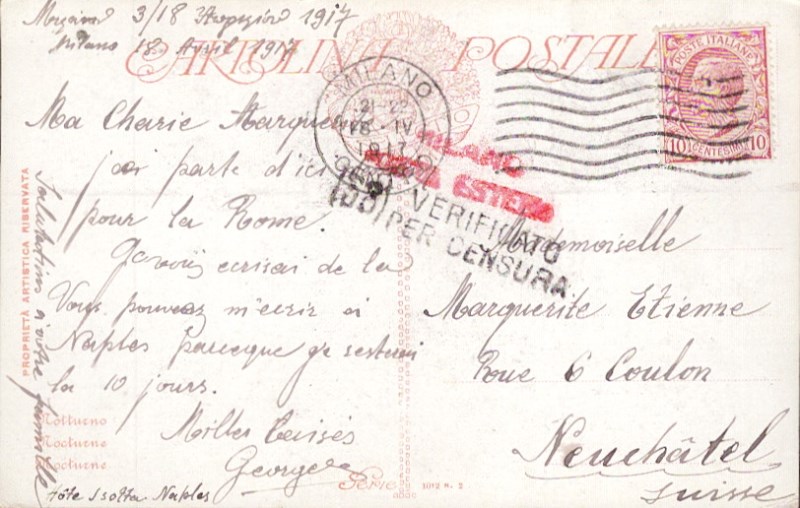 3/18 1917
Milano 18 Avril 1917
CARTOLINA POSTALE
MILANO
21-22
18-IV
1917
POSTE ITALIANE
10 CENTESIMI 10
MILANO
POSTA ESTERA
VERIFICATO
PER CENSURA
Ma Charie Marguerite
j'ai parte d'ici
pour la Rome.
Je vous ecrirai de la
Vous pouvez m'ecrir ai
Naples parceque je resterai
la 10 jours.
Milles baisés
George
Hôte Isotta. Naples
Salutations à votre famille
PROPRIETÀ ARTISTICA RISERVATA
Notturno
Nocturne
Nocturne
Serie 1012 N. 2
Mademoiselle
Marguerite Etienne
Roue 6 Coulon
Neuchâtel
Suisse